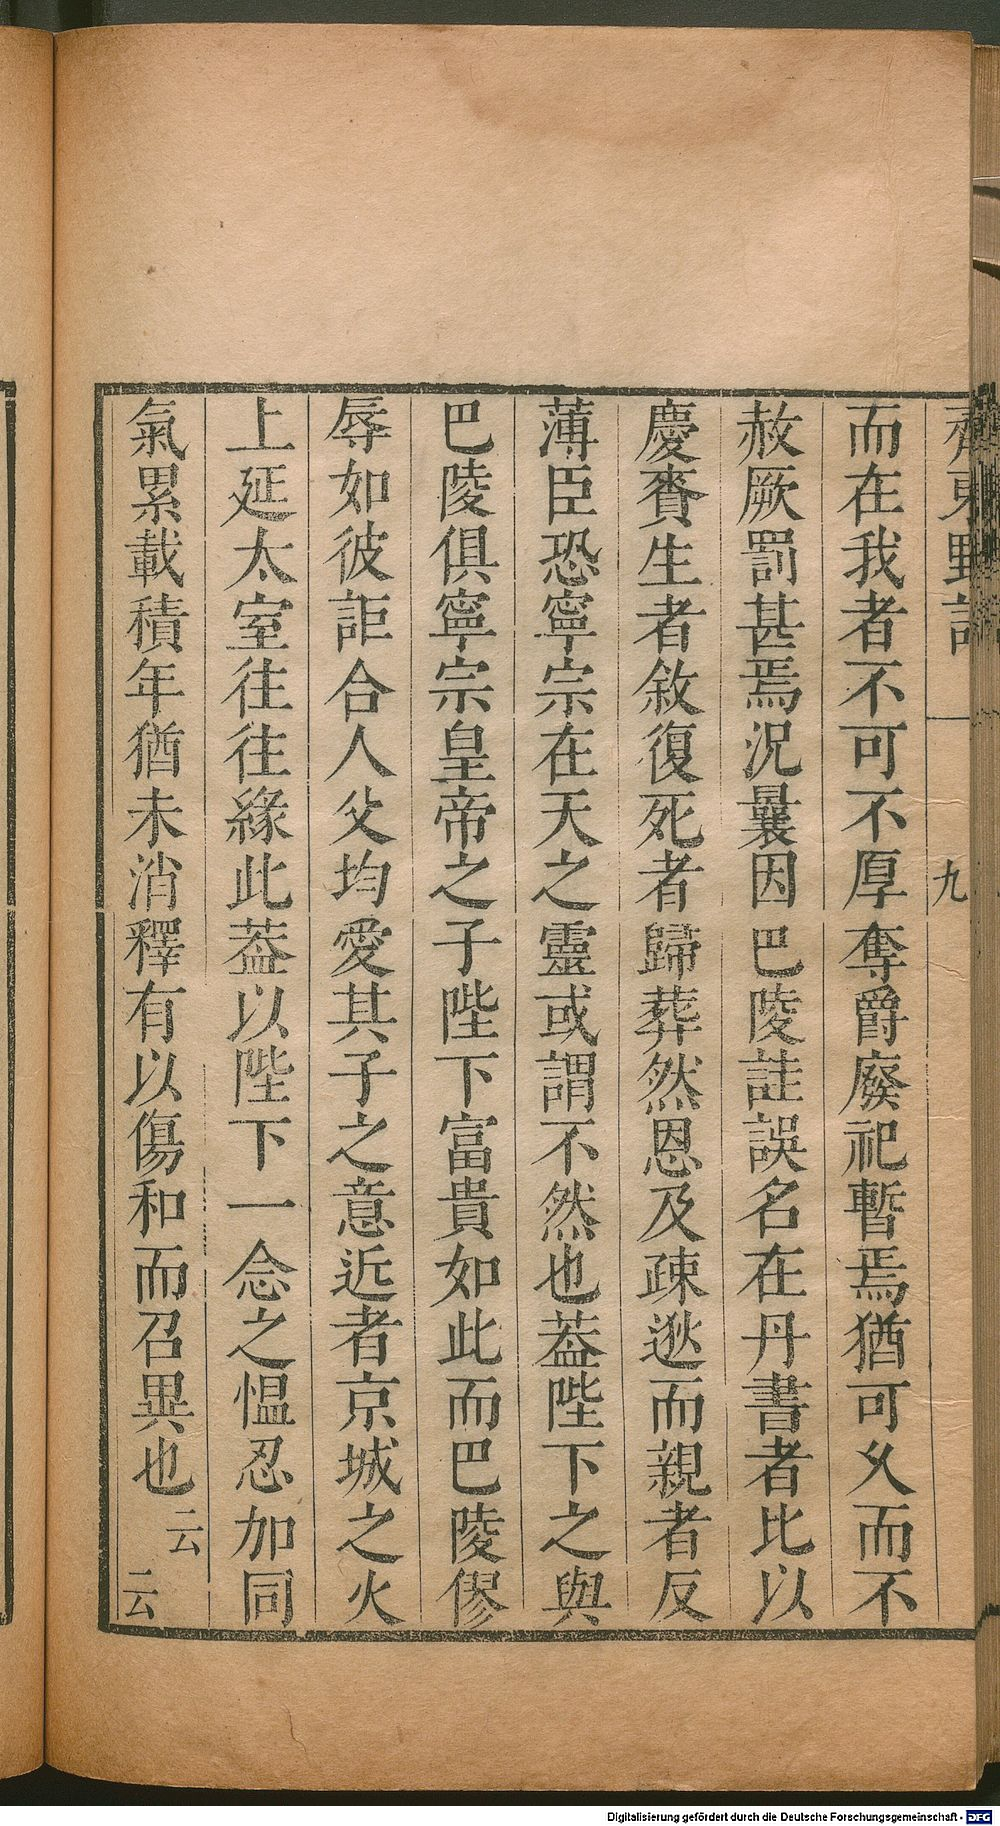 齊東野語 九
而在我者不可不厚奪爵廢祀暫焉猶可乆而不
赦厥罰甚焉況曩因巴陵詿誤名在丹書者比以
慶賚生者敘復死者歸葬然恩及疎逖而親者反
薄臣恐寧宗在天之靈或謂不然也葢陛下之與
巴陵俱寧宗皇帝之子陛下富貴如此而巴陵僇
辱如彼詎合人父均愛其子之意近者京城之火
上延太室往往緣此葢以陛下一念之愠忍加同
氣累載積年猶未消釋有以傷和而召異也云云
Digitalisierung gefördert durch die Deutsche Forschungsgemeinschaft - DFG